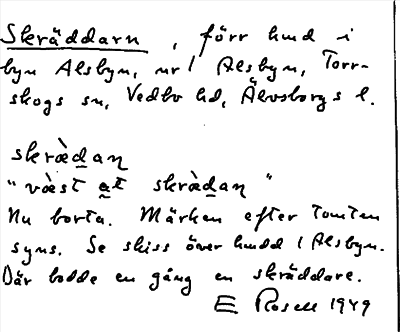 Skräddarn, förr hmd i
byn Alsbyn, nr 1 Alsbyn, Torr-
skogs sn, Vedbo hd, Älvsborgs l.
skrὰdaṇ
"vὰst at skrὰdaṇ"
Nu borta. Märken efter tomten
syns. Se skiss över hmdd i Alsbyn.
Där bodde en gång en skräddare.
E Rosell 1949